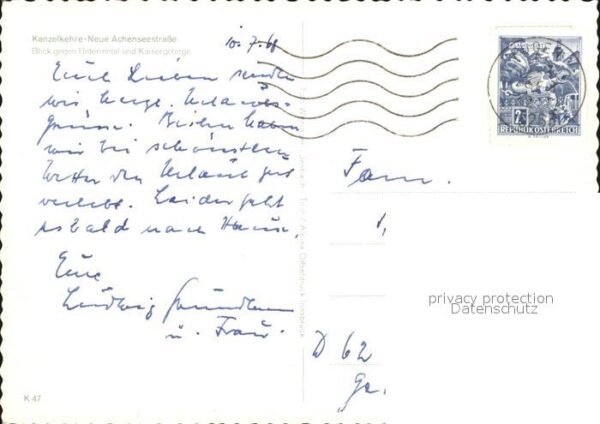 Kanzelkehre-Neue Achenseestraße
Blick gegen Unterinntal und Kaisergebirge
10.7.68
Euch Lieben senden
wir herzl. Urlaubs-
grüsse. Bisher haben
wir bei schönstem
Wetter den Urlaub gut
verlebt. Leider geht
es bald nach Hause.
Eure
Ludwig
u. Frau.
K 47
2S
REPUBLIK ÖSTERREICH
Fam.
privacy protection
Datenschutz
D 62